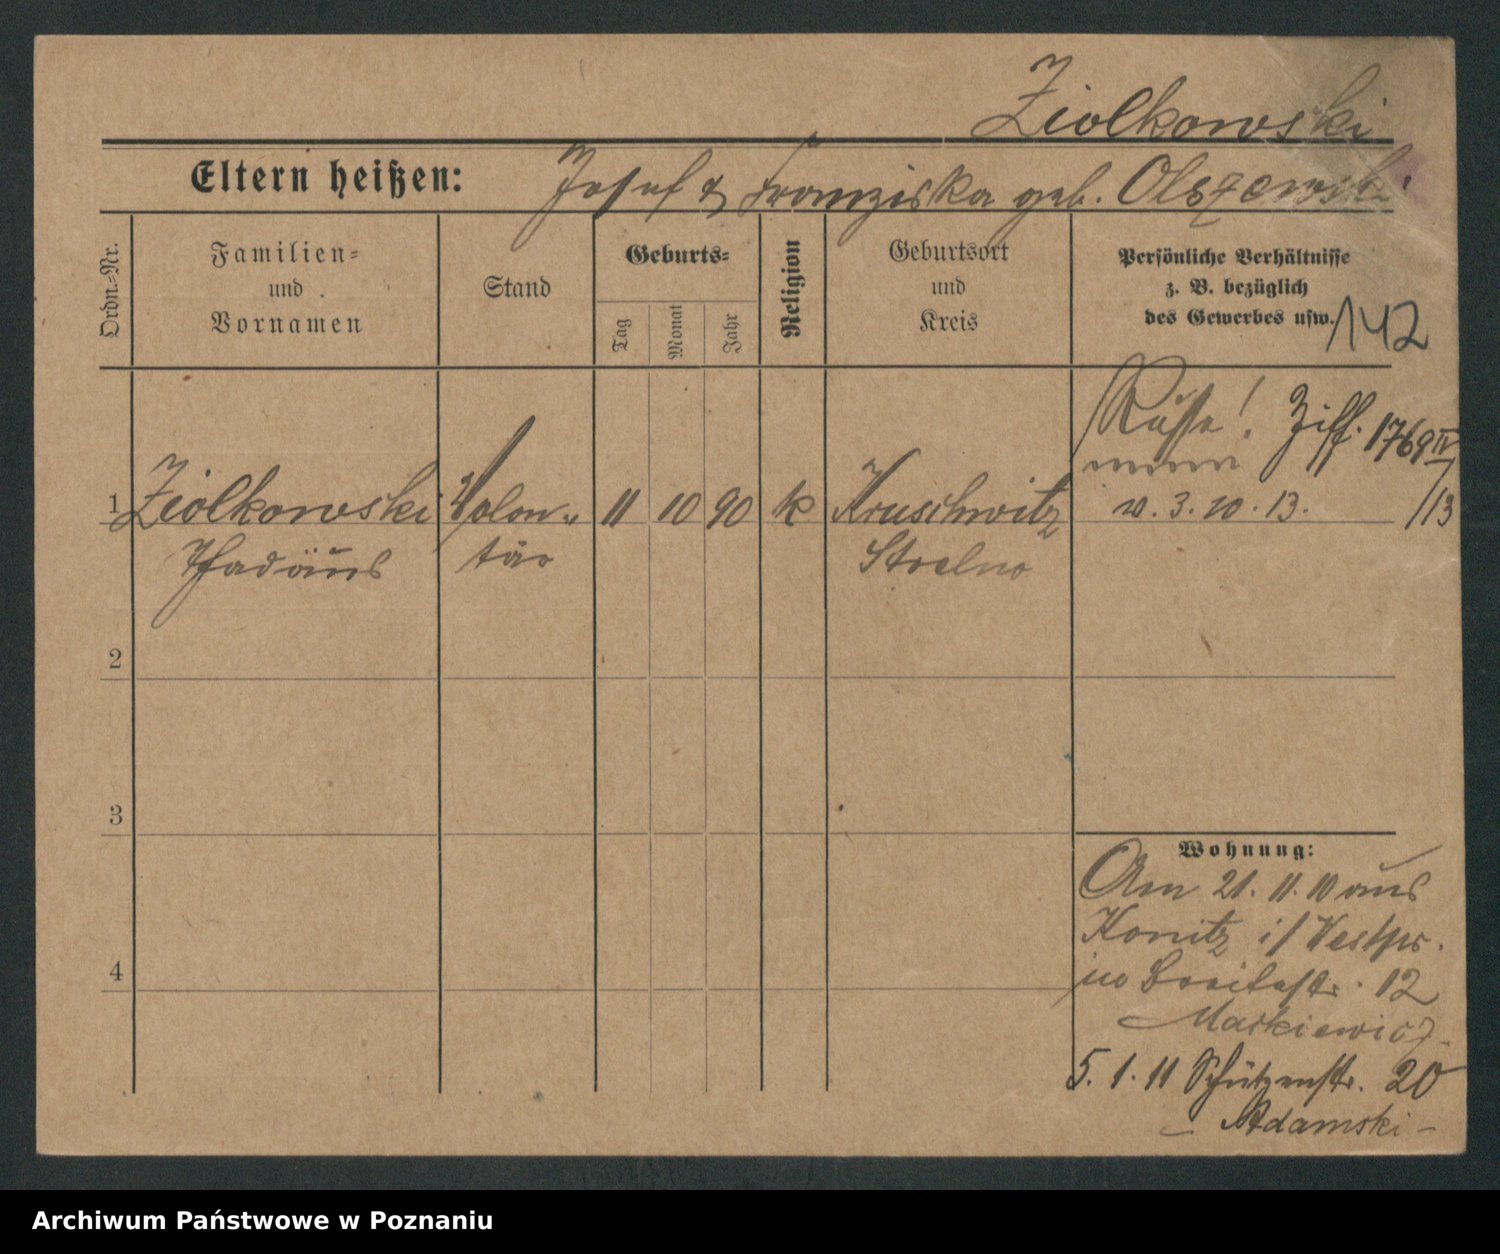 Ziolkowski
Eltern heißen: Josef & Franziska geb. Olszewski
Ordn.-Nr.
Familien-
und
Vornamen
Stand
Geburts-
Tag
Monat
Jahr
Religion
Geburtsort
und
Kreis
Persönliche Verhältnisse
z. B. bezüglich
des Gewerbes usw.
142
Russe! Ziff. 1769 IV
/13
v. 3. 10. 13.
1 Ziolkowski Volon- 11 10 90 k Kruschwitz
Thadäus tär Strelno
2
3
4
Wohnung:
Am 21. 11. 10 aus
Konitz i/Westpr.
in Breitestr. 12
Markiewicz
5. 1. 11 Schützenstr. 20
- Adamski -
Archiwum Państwowe w Poznaniu